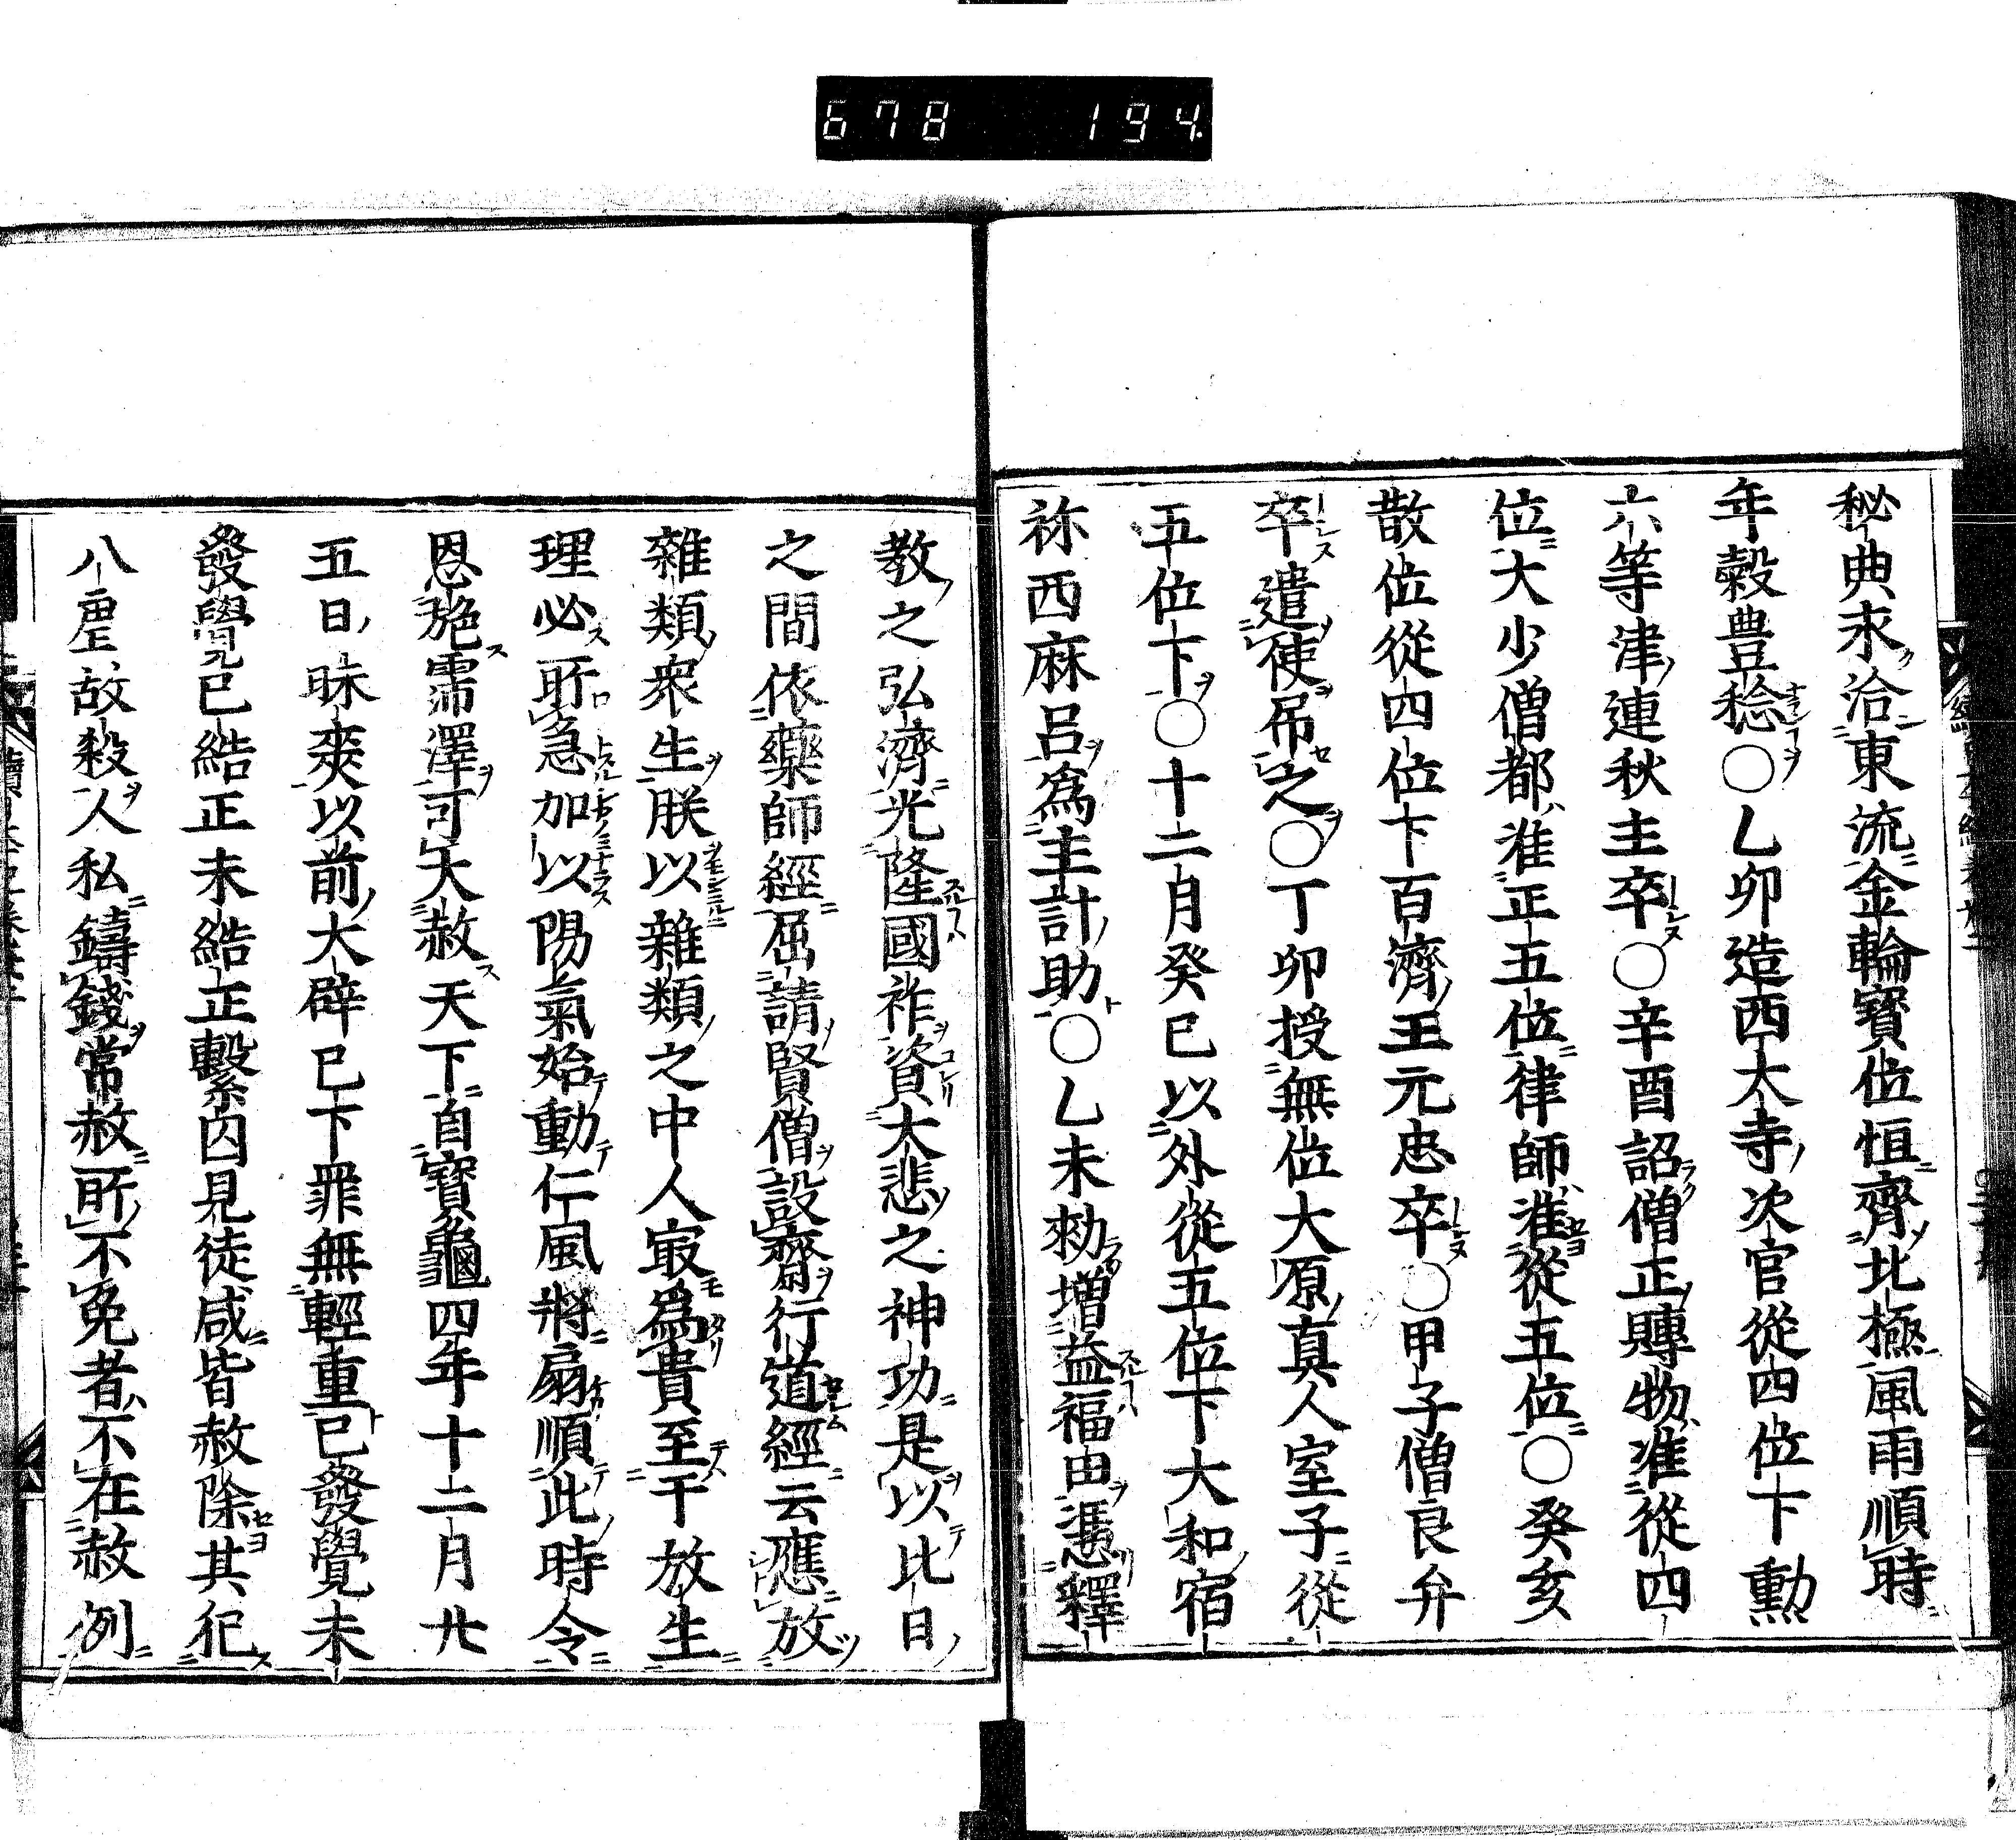 678 194
秘典永洽東流金輪寶位恒齊北極風雨順時
年穀豊稔○乙卯造西大寺次官從四位下勳
六等津連秋主卒○辛酉詔僧正賻物准從四
位大少僧都准正五位律師准從五位○癸亥
散位從四位下百濟王元忠卒○甲子僧良弁
卒遣使吊之○丁卯授無位大原真人室子從
五位下○十二月癸巳以外從五位下大和宿
祢西麻呂爲主計助○乙未勑増益福田憑釋
教之弘濟光隆國祚資大悲之神功是以比日
之間依藥師經屈請賢僧設齋行道經云應放
雜類衆生朕以雜類之中人㝡爲貴至于放生
理必所急加以陽氣始動仁風將扇順此時令
恩施霈澤可大赦天下自寶龜四年十二月廿
五日昧爽以前大辟已下罪無輕重已發覺未
發覺已結正未結正繫囚見徒咸皆赦除其犯
八虐故殺人私鑄錢常赦所不免者不在赦例